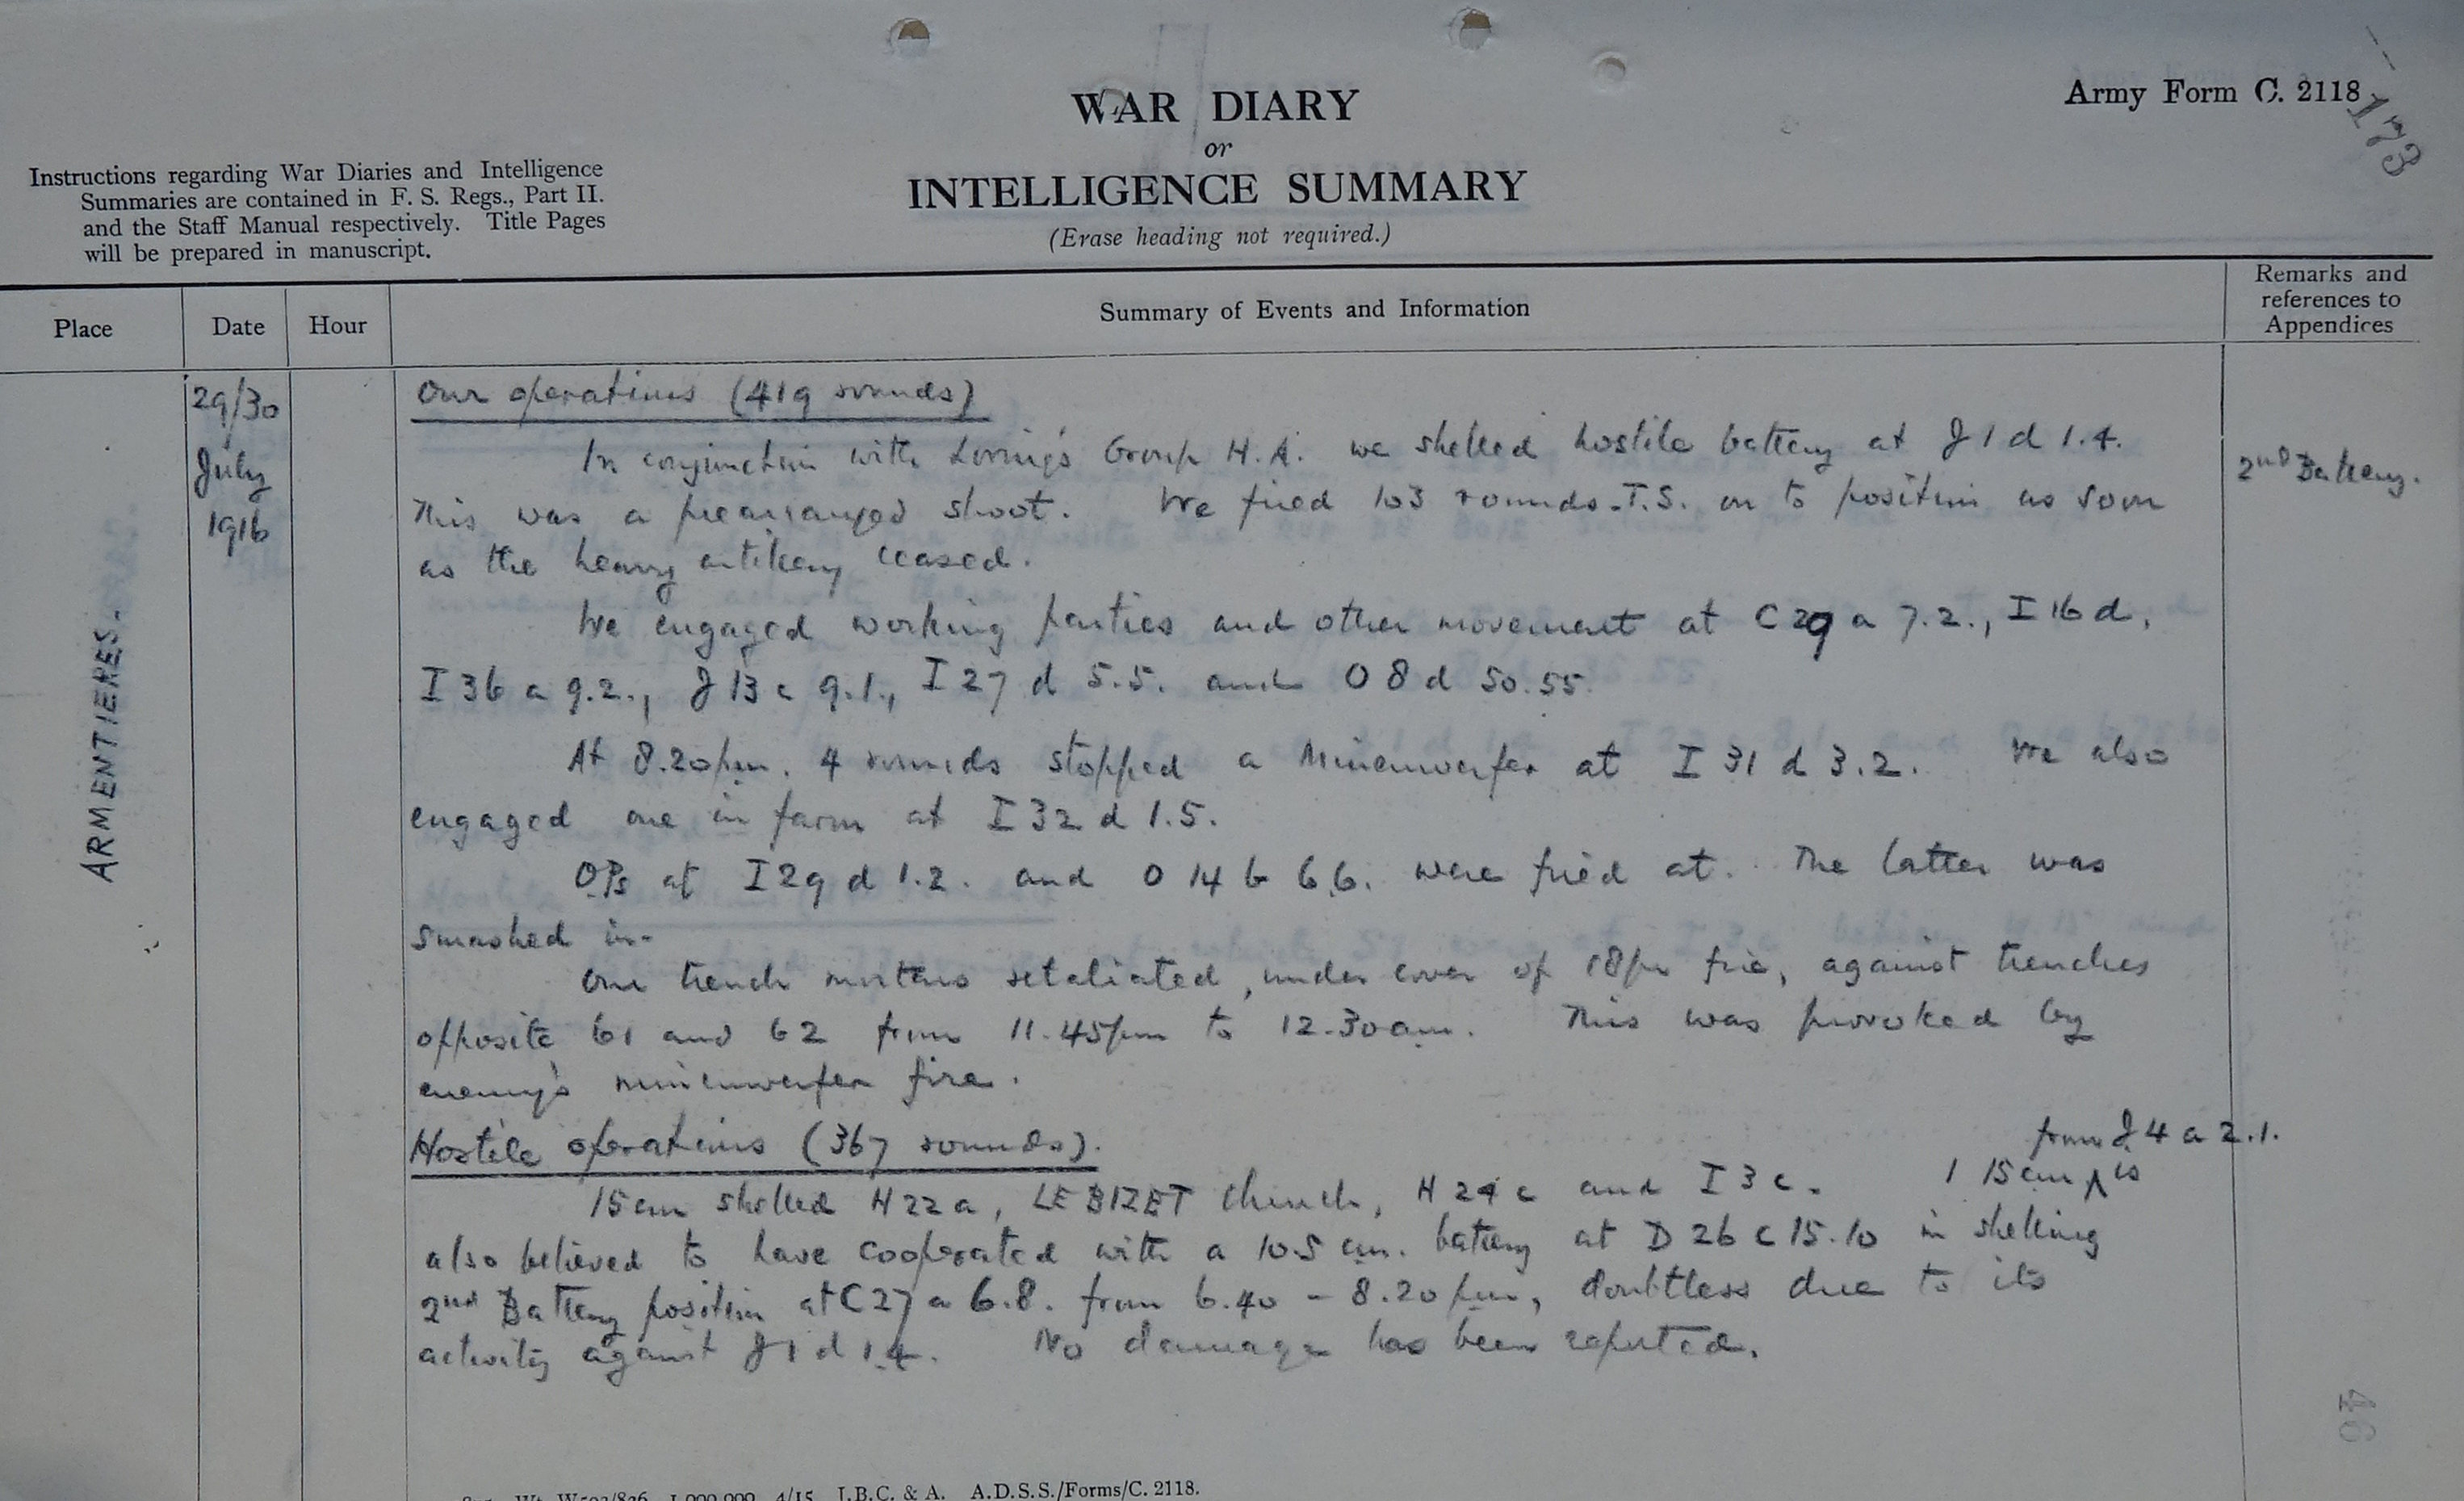 Army Form C. 2118
173
WAR DIARY
or
INTELLIGENCE SUMMARY
(Erase heading not required.)
Instructions regarding War Diaries and Intelligence
Summaries are contained in F. S. Regs., Part II.
and the Staff Manual respectively. Title Pages
will be prepared in manuscript.
Place
Date
Hour
Summary of Events and Information
Remarks and
references to
Appendices
ARMENTIERES.
29/30
July
1916
Our operations (419 rounds)
In conjunction with Loring's Group H.A. we shelled hostile battery at J 1 d 1.4.
2nd Battery.
This was a prearranged shoot. We fired 103 rounds T.S. on to position as soon
as the heavy artillery ceased.
We engaged working parties and other movement at C 29 a 7.2., I 16 d,
I 36 a 9.2., J 13 c 9.1., I 27 d 5.5. and O 8 d 50.55
At 8.20pm. 4 rounds stopped a Minenwerfer at I 31 d 3.2. We also
engaged one in farm at I 32 d 1.5.
OPs at I 29 d 1.2. and O 14 b 6.6. were fired at. The latter was
smashed in.
Our trench mortars retaliated, under cover of 18pr fire, against trenches
opposite 61 and 62 from 11.45pm to 12.30am. This was provoked by
enemy's minenwerfer fire.
Hostile operations (367 rounds).
from J 4 a 2.1.
15cm shelled H 22 a, LE BIZET church, H 24 c and I 3 c. 1 15cm is
also believed to have cooperated with a 10.5 cm. battery at D 26 c 15.10 in shelling
2nd Battery position at C 27 a 6.8. from 6.40 - 8.20 pm, doubtless due to its
activity against J 1 d 1.4. No damage has been reported.
46
1,000,000 4/15 J.B.C. & A. A.D.S.S./Forms/C. 2118.